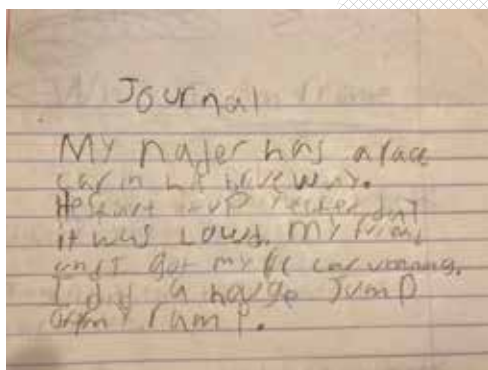 Journal
My nater has a race
car in his driveway.
He start it up
it was Loud. My
and I got my RC car running.
I did a houge Jump
my ramp.